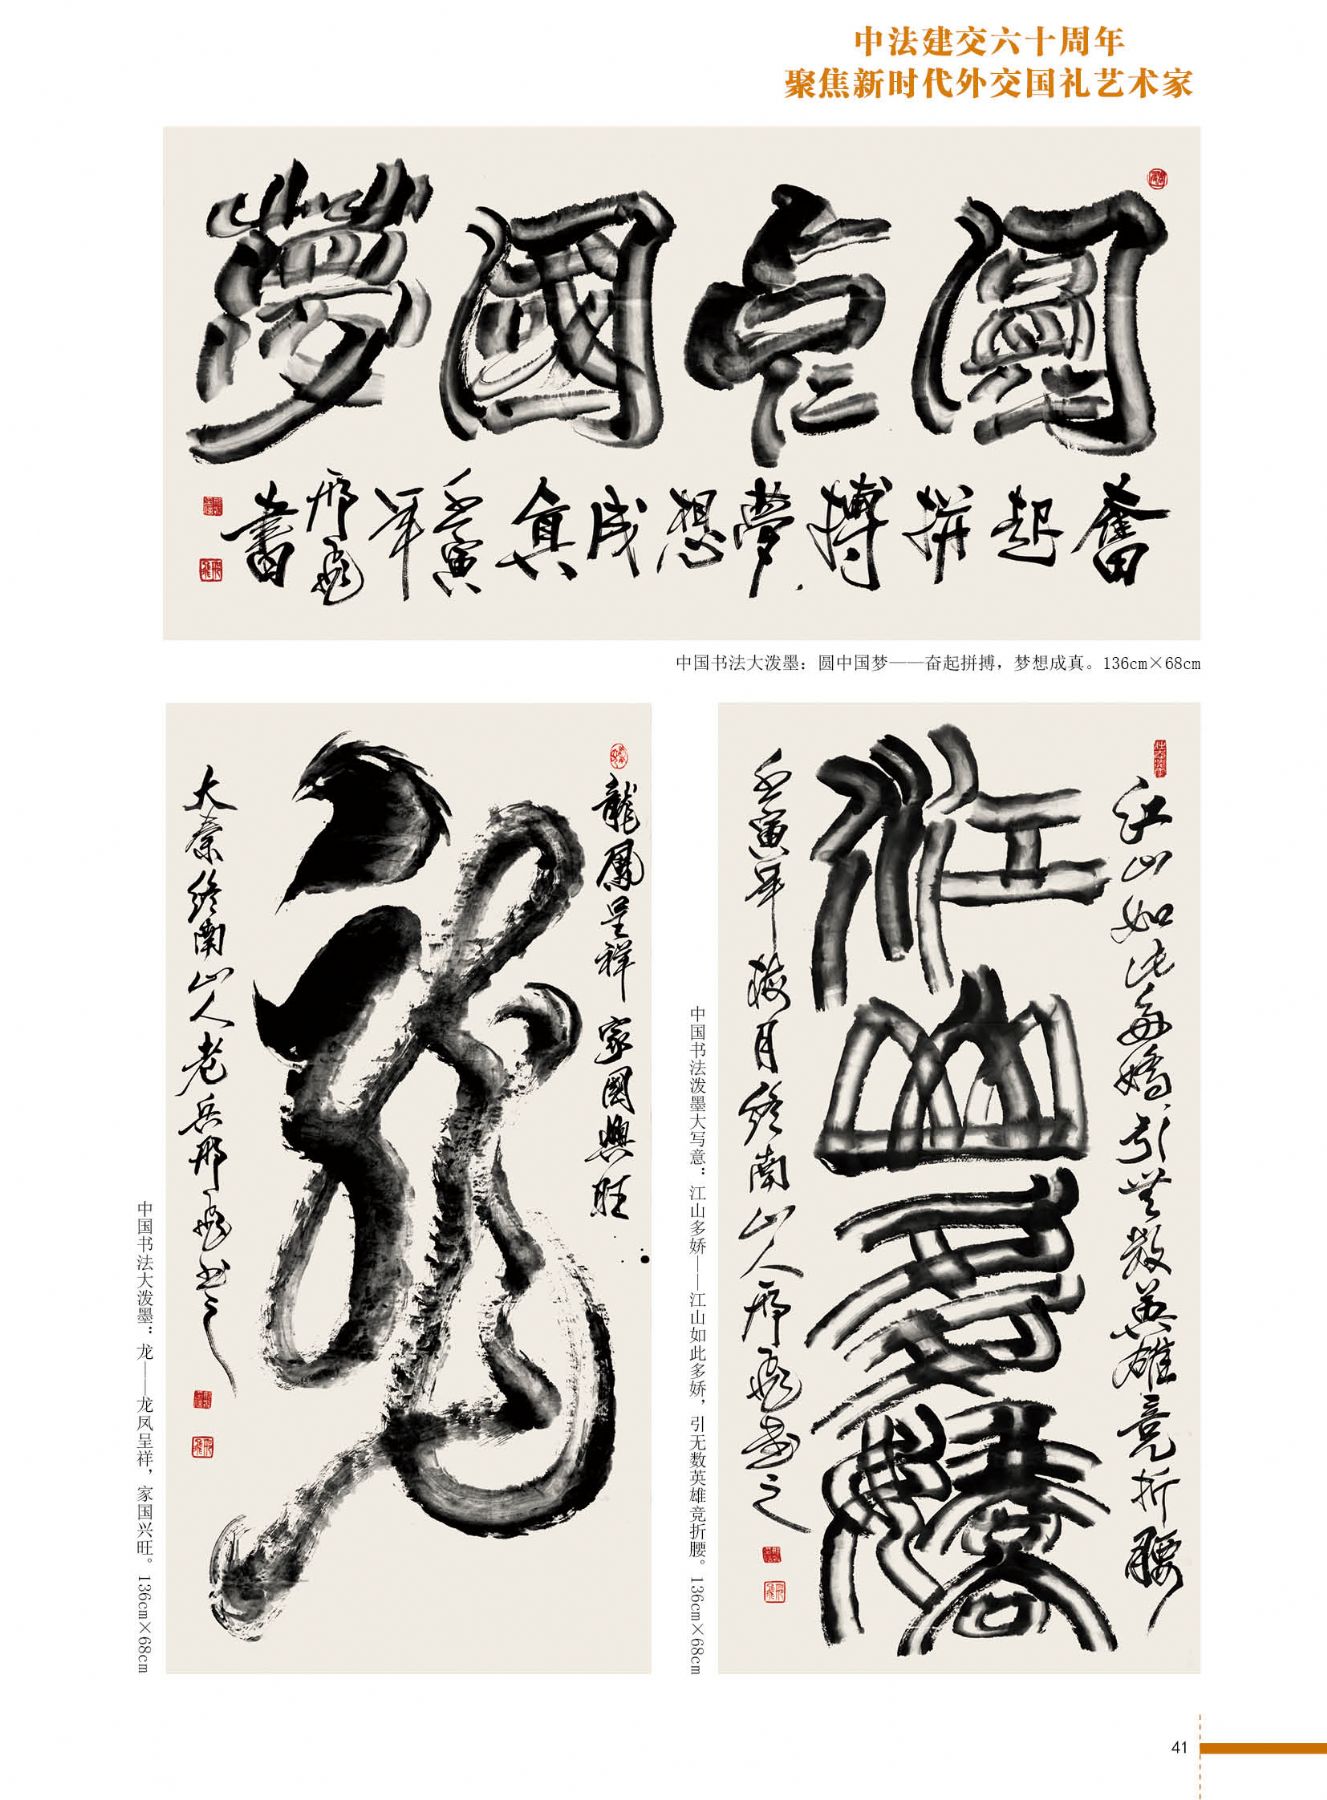 中法建交六十周年
聚焦新时代外交国礼艺术家
圓中國夢
奮起拼搏夢想成真
壬寅年
邢飛
書
中国书法大泼墨：圆中国梦——奋起拼搏，梦想成真。136cm×68cm
龍鳳呈祥 家國興旺
大秦終南山人老兵邢飛书之
中国书法大泼墨：龙——龙凤呈祥，家国兴旺。136cm×68cm
江山如此多嬌引无数英雄竞折腰
江山多嬌
壬寅年梅月終南山人邢飛书之
中国书法泼墨大写意：江山多娇——江山如此多娇，引无数英雄竞折腰。136cm×68cm
41